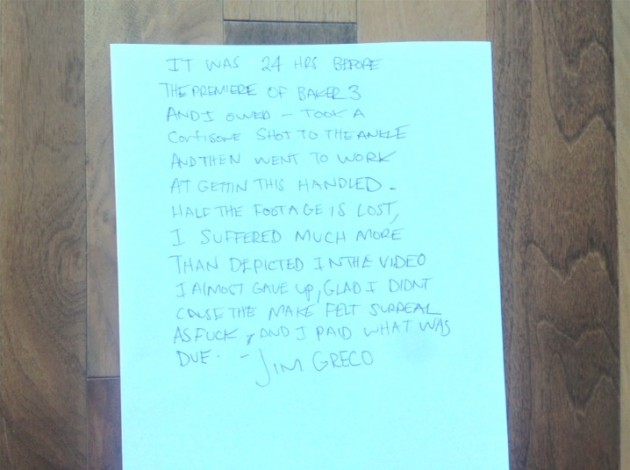 IT WAS 24 HRS BEFORE
THE PREMIERE OF BAKER 3
AND I OWED - TOOK A
CORTISONE SHOT TO THE ANKLE
AND THEN WENT TO WORK
AT GETTIN THIS HANDLED -
HALF THE FOOTAGE IS LOST,
I SUFFERED MUCH MORE
THAN DEPICTED IN THE VIDEO
I ALMOST GAVE UP, GLAD I DIDNT
CAUSE THE MAKE FELT SURREAL
AS FUCK, AND I PAID WHAT WAS
DUE. - JIM GRECO